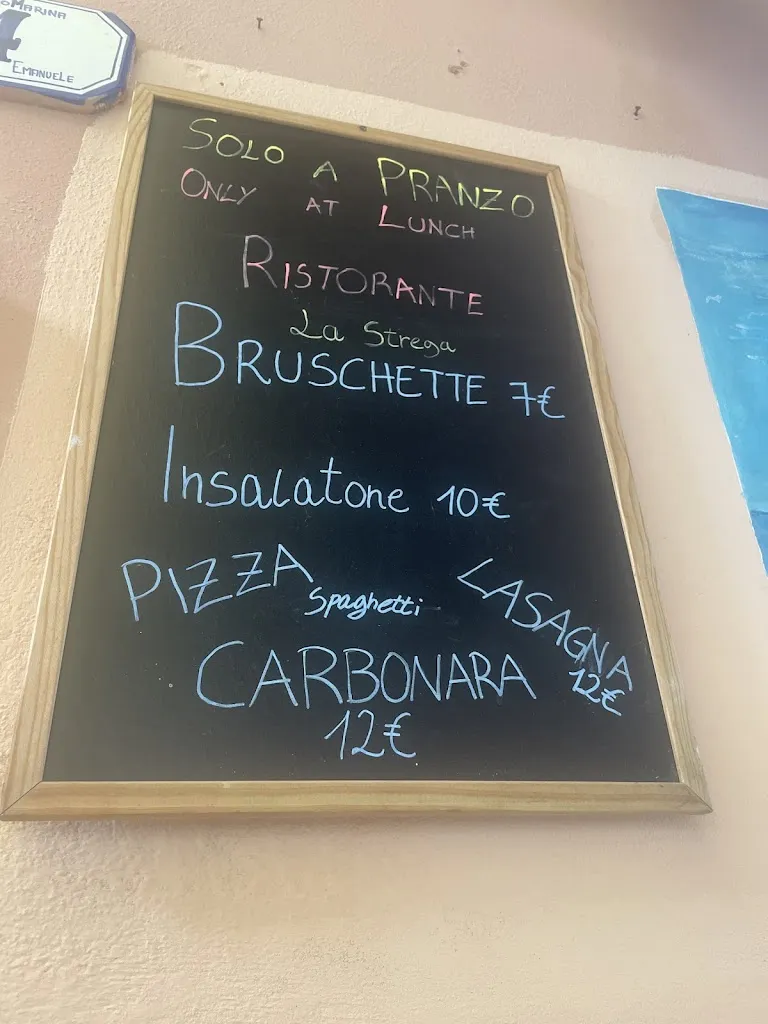 oMARINA
4
EMANUELE
SOLO A PRANZO
ONLY AT LUNCH
RISTORANTE
La Strega
BRUSCHETTE 7€
Insalatone 10€
PIZZA
Spaghetti
LASAGNA
12€
CARBONARA
12€